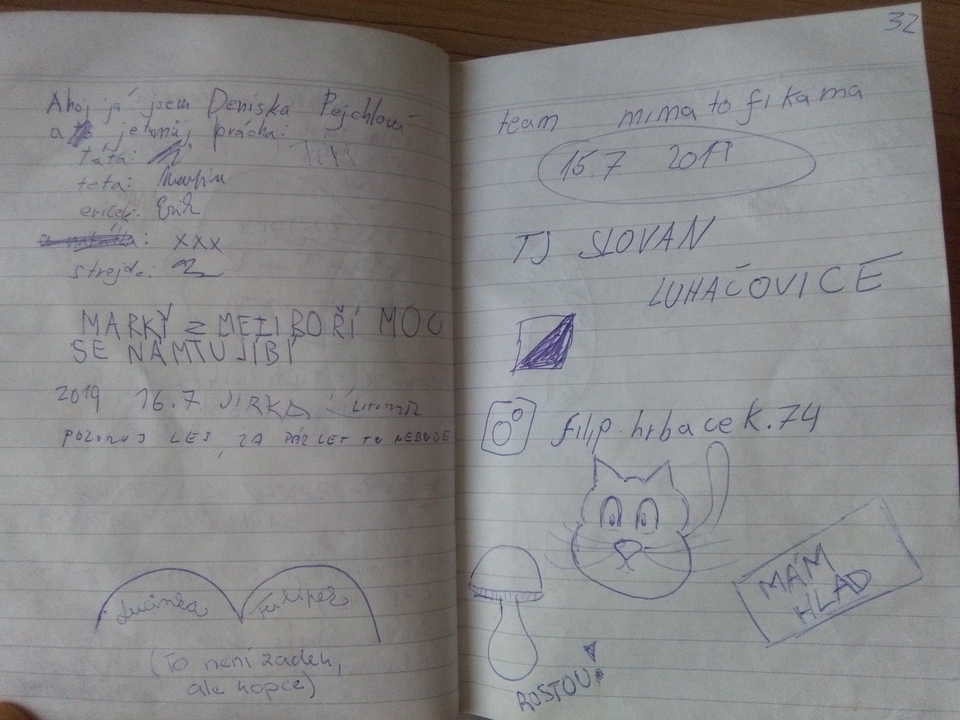 Ahoj já jsem Deniska Pejchlová
a to je můj prácha:
táta:
teta: Martin
eriček: Erik
: xxx
strejda:
MARKÝ Z MEZIBOŘÍ MOC
SE NÁM TU JÍBÍ
2019 16.7 JIRKA
POZORUJ LES, ZA PÁR LET TU NEBUDE
Lucinka
(To není zadek,
ale kopce)
32
team mimatofikama
15.7 2019
TJ SLOVAN
LUHAČOVICE
filip.hrbacek.74
MÁM
HLAD
ROSTOU!